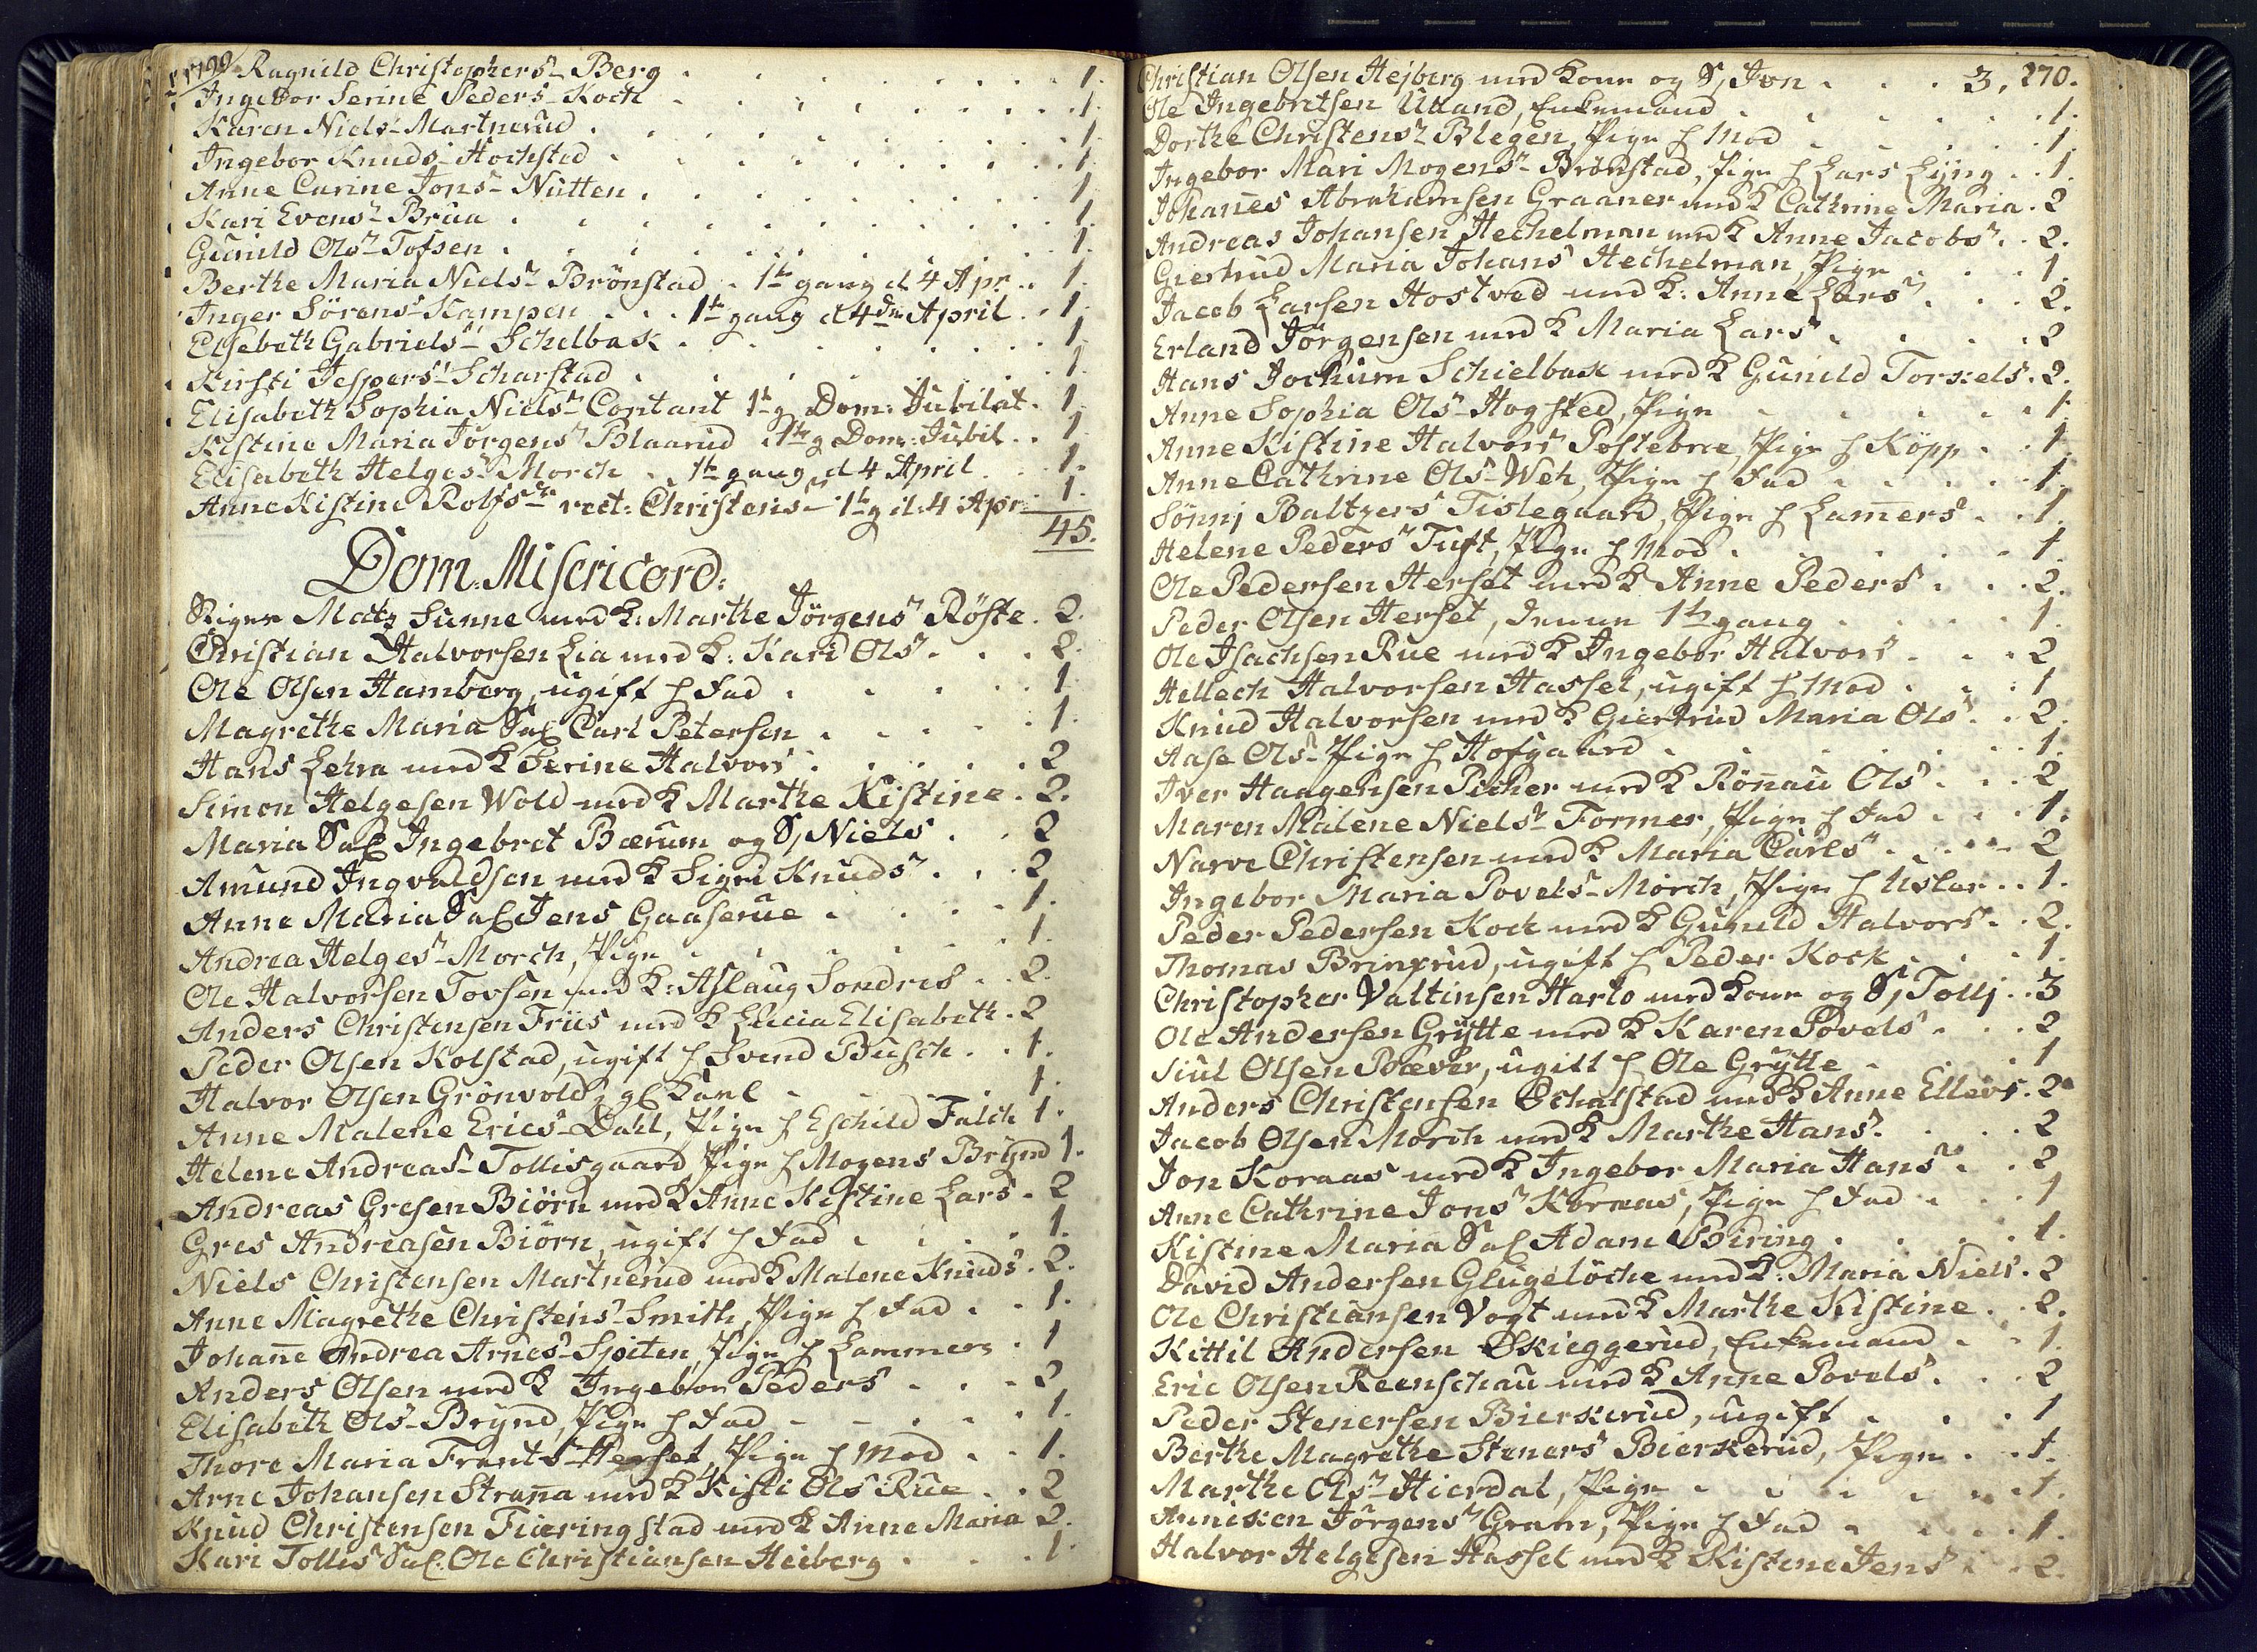 1799 Ragnild Christophers- Berg . . . 1.
Ingebor Serine Peders- Koch . . . 1.
Karen Niels- Martnerud . . . 1.
Ingebor Knuds- Hochsted . . . 1.
Anne Carine Jons- Nutten . . . 1.
Kari Evens- Brua . . . 1.
Gunild Ols- Tofsen . . . 1.
Berthe Maria Niels- Brönstad . 1te gang d 4 Apr . . 1.
Inger Sörens- Kampen . . . 1te gang d 4de April . . 1.
Elsebeth Gabriels- Schelbak . . . 1.
Kirsti Jespers- Scharstad . . . 1.
Elisabeth Sophia Niels- Contant 1te g Dom: Jubilat . 1.
Kistine Maria Jörgens- Blaarud . 1te g Dom: Jubil . . 1.
Elisabeth Helges- Morch . 1te gang d 4 April . . 1.
Anne Kistine Rolfs- rect: Christens- 1te g d: 4 Apr: 1.
45.
Dom: Misericord:
Mats Sunne med K: Marthe Jörgens- Röste . 2.
Christian Halvorsen Lia med K: Kari Ols- . . . 2.
Ole Olsen Hamberg, ugift h Fad . . . 1.
Magrethe Maria Sal Carl Petersen . . . 1.
Hans Lehra med K Serine Halvors- . . . 2
Simon Helgesen Wold med K Marthe Kistine . 2.
Maria Sal Ingebret Bærum og S, Niels . . 2
Amund Ingvaldsen med K Sigri Knuds- . . . 2
Anne Maria Sal Jens Gaaserue . . . 1.
Andrea Helges- Morch, Pige . . . 1.
Ole Halvorsen Tovsen med K: Aslaug Sondres . . 2.
Anders Christensen Friis med K Lucia Elisabeth . 2
Peder Olsen Kolstad, ugift h Svend Busch . . 1.
Halvor Olsen Grönvold, gl Karl . . . 1.
Anne Malene Erics- Dahl, Pige h Eschild Falch 1.
Helene Andreas- Tollisgaard, Pige h Mogens Brÿnd 1.
Andreas Gresen Biörn med K Anne Kistine Lars . 2
Gres Andreasen Biörn, ugift h Fad . . . 1.
Niels Christensen Martnerud med K Malene Knuds . 2.
Anne Magrethe Christens- Smith, Pige h Fad . . 1.
Johanne Andrea Arnes- Spiten, Pige h Lammers . 1
Anders Olsen med K Ingebor Peders . . . 2
Elisabeth Ols- Brÿnd, Pige h Fad . . . 1.
Thore Maria Frants- Herset, Pige h Mod . . 1.
Arne Johansen Stranna med K Kisti Ols Rue . . 2
Knud Christensen Fiæringstad med K Anne Maria 2.
Kari Tollis- Sal: Ole Christiansen Heiberg . . . 1
Christian Olsen Hejberg med Kone og S, Jon . . . 3, 270.
Ole Ingebretsen Uland, Enkemand . . . 1.
Dorthe Christens- Blegen, Pige h Mod . . . 1.
Ingebor Mari Mogens- Brönstad, Pige h Lars Lÿng . . 1.
Johannes Abrahamsen Graaner med K Cathrine Maria . 2
Andreas Johansen Hechelman med K Anne Jacobs- . . 2.
Giertrud Maria Johans- Hechelman, Pige . . . 1.
Jacob Larsen Hostved med K: Anne Lars- . . . 2.
Erland Jörgensen med K Maria Lars- . . . 2
Hans Jochum Schielbak med K Gunild Torkels . 2.
Anne Sophia Ols- Hogsted, Pige . . . 1.
Anne Kistine Halvors- Postebrœ, Pige h Köpp . . . 1
Anne Cathrine Ols- Weh, Pige h Fad . . . 1.
Sönnj Baltzers- Tislegaard, Pige h Lamers . . 1.
Helene Peders- Tuft, Pige h Mod . . . 1.
Ole Pedersen Herset med K Anne Peders . . . 2.
Peder Olsen Herset, 1te gang . . . 1.
Ole Isachsen Rue med K Ingebor Halvors . . . 2
Hellech Halvorsen Hassel, ugift h Mod . . . 1
Knud Halvorsen med K Giertrud Maria Ols- . . 2.
Aase Ols- Pige h Hofgaard . . . 1.
Iver Haagensen Picher med K Rönnau Ols- . . . 2
Maren Malene Niels- Former, Pige h Fad . . . 1.
Narve Christensen med K Maria Carls- . . . 2
Ingebor Maria Povels- Mörch, Pige h Uslar . . 1.
Peder Pedersen Kock med K Gunild Halvors- . . 2.
Thomas Brinxrud, ugift h Peder Kock . . . 1.
Christopher Valtinsen Harto med Kone og S, Tollj . . 3
Ole Andersen Grÿtte med K Karen Povels- . . . 2
Siul Olsen Bæver, ugift h Ole Grÿtte . . . 1
Anders Christensen Schalstad med K Anne Ellevs . 2
Jacob Olsen Morch med K Marthe Hans- . . . 2
Jon Koraas med K Ingebor Maria Hans- . . 2
Anne Cathrine Jons- Koraas, Pige h Fad . . . 1
Kistine Maria Sal Adam Biring . . . 1.
David Andersen Glugelöche med K: Maria Niels . 2
Ole Christiansen Vogt med K Marthe Kistine . . 2.
Kittil Andersen Skieggerud, Enkemand . . 1.
Eric Olsen Reenschau med K Anne Povels . . . 2
Peder Stenersen Bierkerud, ugift . . . 1
Berthe Magrethe Steners- Bierkerud, Pige . . . 1.
Marthe Ols- Hierdal, Pige . . . 1.
Anniken Jörgens- Gram, Pige h Fad . . . 1.
Halvor Helgesen Hassel med K Kistene Jens- . . 2.